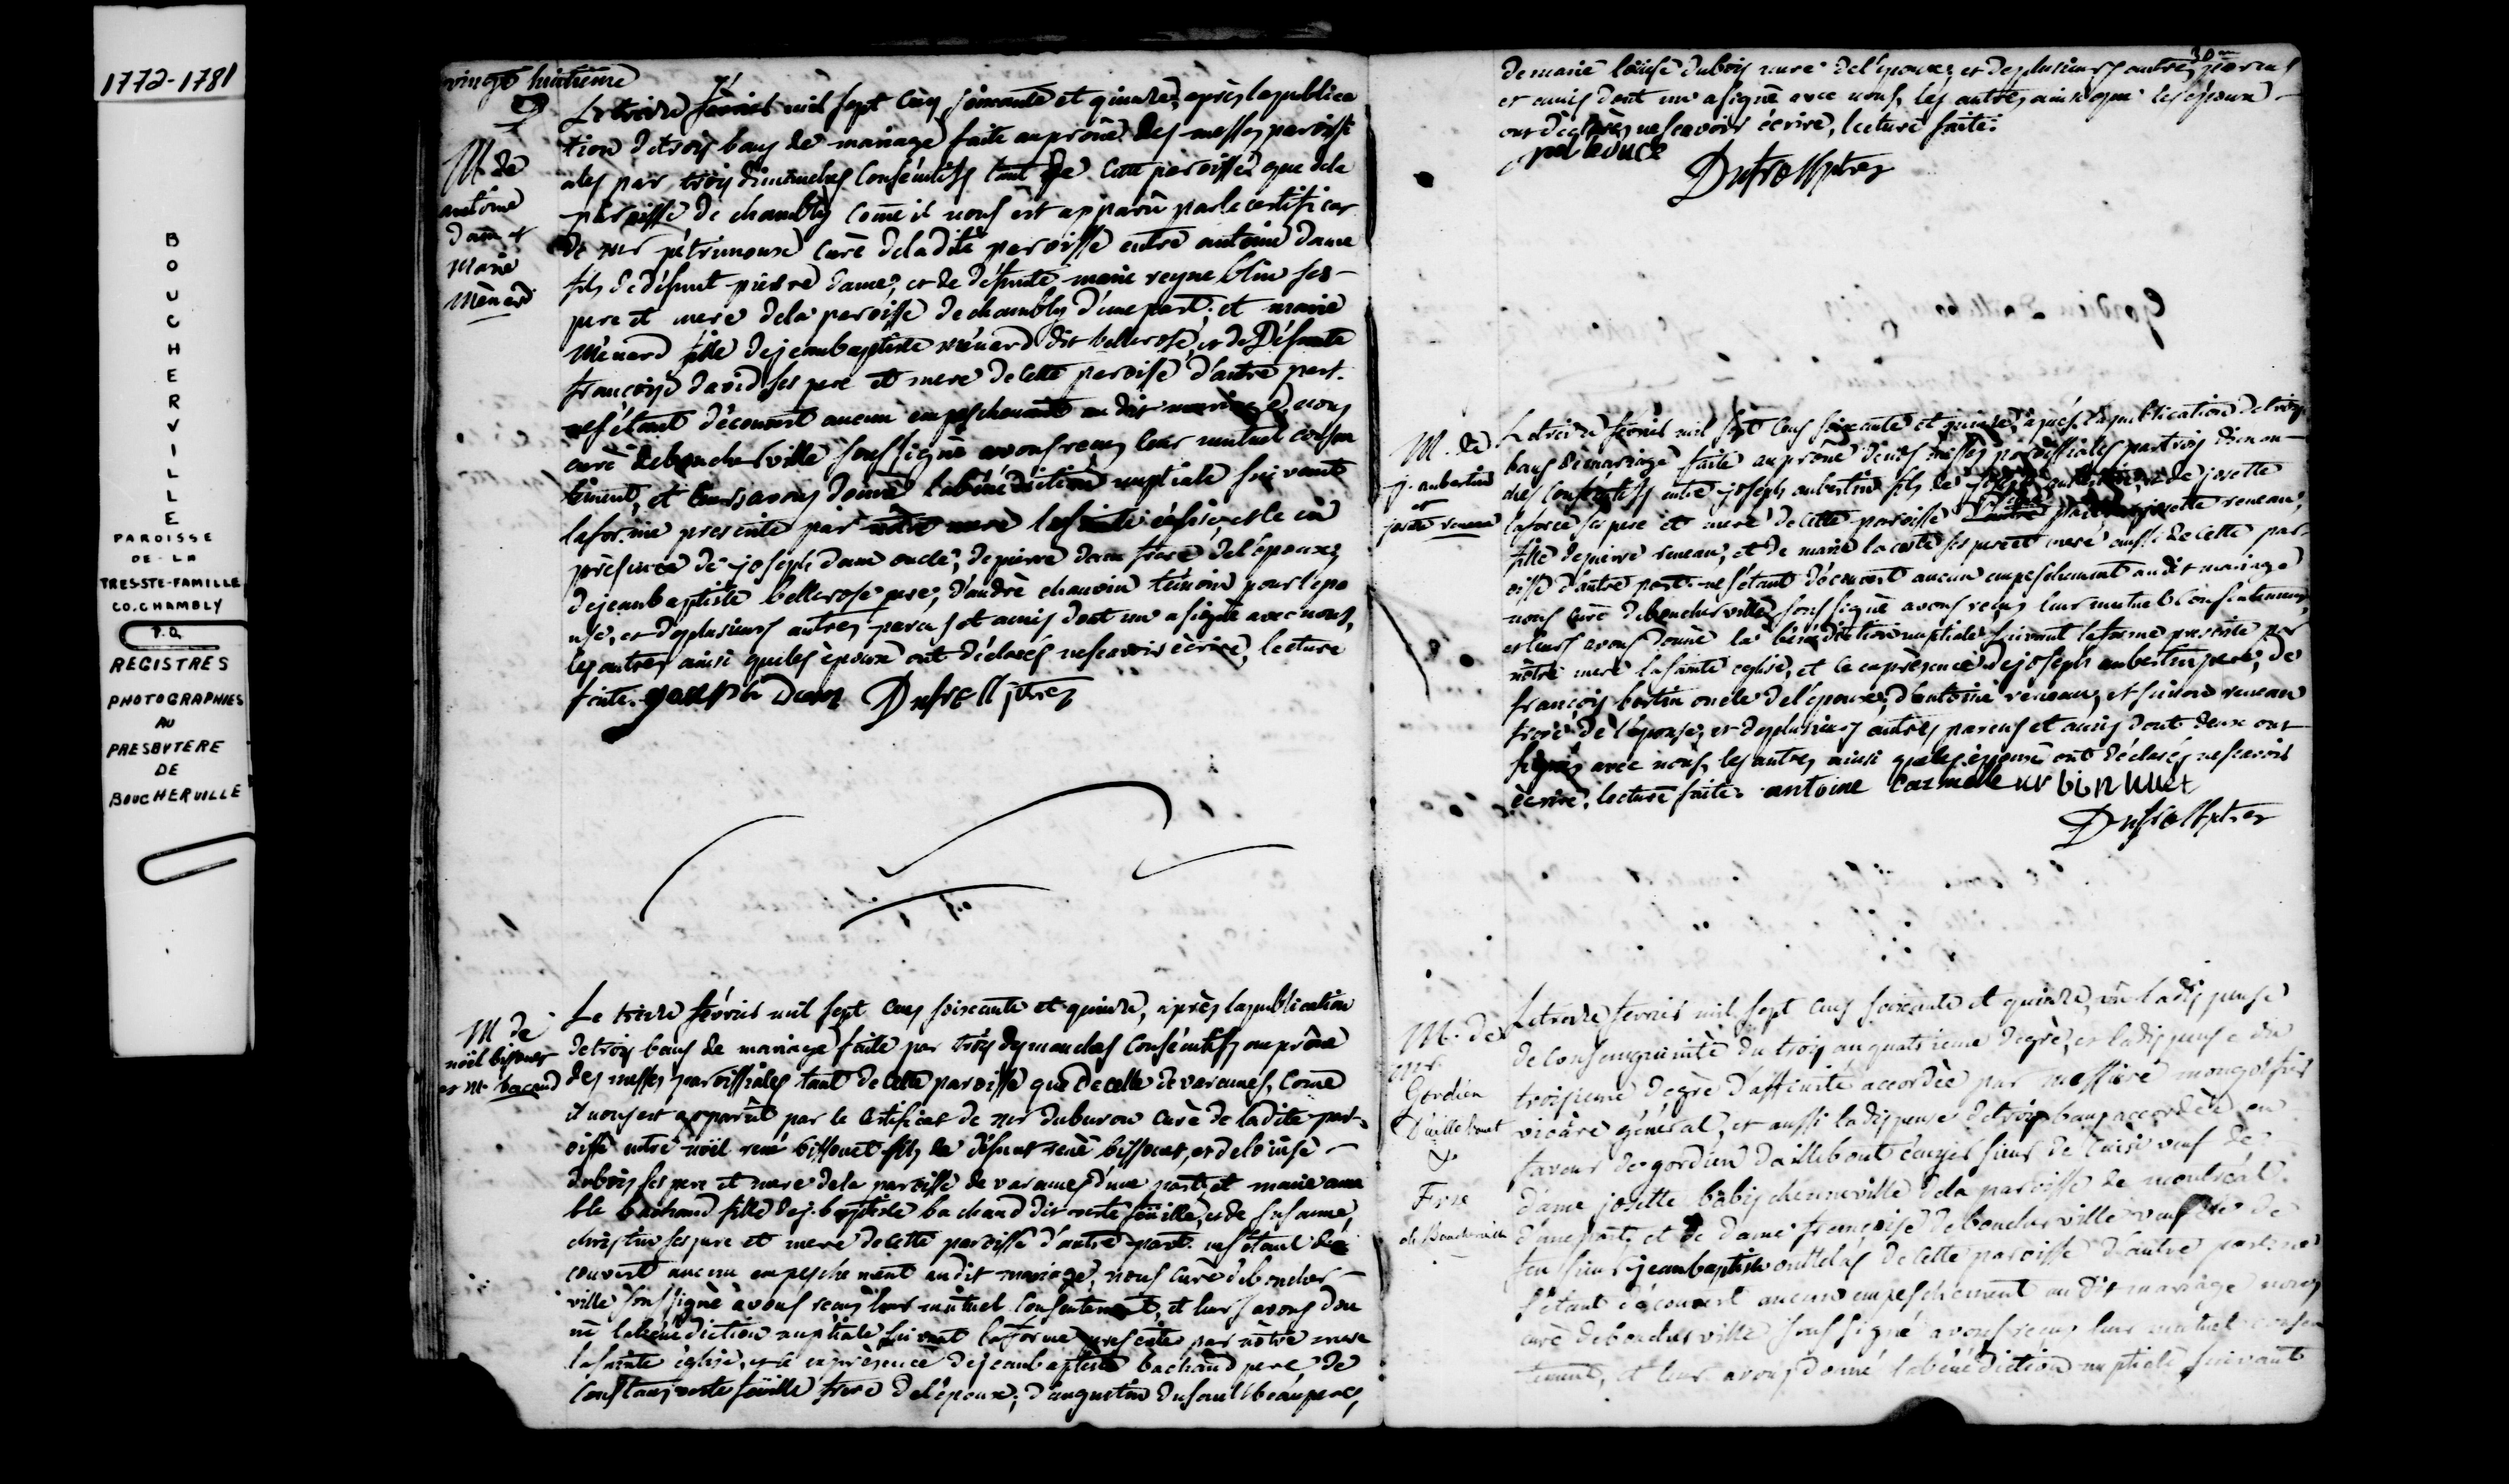 1772-1781
BOUCHERVILLE
PAROISSE
DE LA
TRESSTE-FAMILLE
CO. CHAMBLY
P.Q.
REGISTRES
PHOTOGRAPHIES
AU
PRESBYTERE
DE
BOUCHERVILLE
vingt huitieme
M. de
antoine
dam et
Marie
Mènard
Le treize fèvrier mil sept cens soixante et quinze, après la publica
tion de trois bans de mariage faite au prône des messes paroissi
ales par trois dimanches consécutifs tant de cette paroisse que de la
paroisse de chambly come il nous est apparû par le certificat
de mr pétrimoux curé de la dite paroisse entre antoine dame
fils de défunt pierre dame, et de défunte marie reyne blin ses
pere et mere de la paroisse de chambly d'une part, et marie
Mènard fille de jean baptiste mènard dit bellerose, et de Défunte
françoise david ses pere et mere de cette paroisse d'autre part.
ne s'étant découvert aucun empeschement au dit mariage, nous
curé de boucherville soussigné avons reçu leur mutuel consen
tement, et leurs avons donné la bénédiction nuptiale suivant
la forme prescrite par nôtre mere la sainte église, et ce en
présence de joseph dam oncle, de pierre dam frere de l'époux,
de jean baptiste bellerose pere, d'andré chauvin témoin pour l'épo
use, et de plusieurs autres parens et amis dont un a signé avec nous,
les autres ainsi que les époux ont déclarés ne scavoir écrire, lecture
faite. Dufrost ptre
M de
noël bissonet
et M. bacand
Le treize fèvrier mil sept cens soixante et quinze, après la publication
de trois bans de mariage faite par trois dymanches consécutifs au prône
des messes paroissiales tant de cette paroisse que de celle de varennes, come
il nous est apparût par le certificat de mr duburon curé de la dite par-
oisse entre noël rené bissonet fils de défunt rené bissonet, et de loüise
dubois ses pere et mere de la paroisse de varennes d'une part, et marie ama
ble bachand fille de j. baptiste bachand dit verte föuille, et de susanne
christin ses pere et mere de cette paroisse d'autre part. ne s'étant dé
couvert aucun empeschement au dit mariage, nous curé de boucher
ville soussigné avons reçu leur mutuel consentement, et leurs avons don
né la bénédiction nuptiale suivant la forme prescrite par nôtre mere
la sainte église, et ce en présence de jean baptiste bachand pere, de
constant verte föuille frere de l'épouse, d'augustin dusault beaupere,
30me
de marie loüise dubois mere de l'époux, et de plusieurs autres parens
et amis dont un a signé avec nous, les autres ainsi que les époux
ont déclarés ne scavoir écrire, lecture faite.
Dufrost ptre
M. de
j. aubertin
et
josette reneau
Le treize fèvrier mil sept cens soixante et quinze, après la publication de trois
bans de mariage faite au prône de nos messes paroissiales par trois diman-
ches consécutifs entre joseph aubertin fils de joseph aubertin, et de josette
laforce ses pere et mere de cette paroisse d'une part, josette reneau,
fille de pierre reneau, et de marie lacoste ses pere et mere aussi de cette par-
oisse d'autre part. ne s'étant découvert aucun empeschement au dit mariage
nous curé de boucherville soussigné avons reçu leur mutuel consentement,
et leurs avons donné la bénédiction nuptiale suivant la forme prescrite par
nôtre mere la sainte église, et ce en présence de joseph aubertin pere, de
françois bertin oncle de l'époux, d'antoine reneau, et simon reneau
frere de l'épouse, et de plusieurs autres parens et amis dont deux ont
signés avec nous, les autres ainsi que les époux ont déclarés ne scavoir
écrire, lecture faite. antoine
Dufrost ptre
M. de
mr
Gordien
Daillebout
&
Frse
de Boucherville
Le treize fevrier mil sept cens soixante et quinze, vû la dispense
de consanguinité du trois au quatrieme degré, et la dispense du
troisieme degré d'affinité accordée par messire mongolfier
vicaire général, et aussi la dispense de trois bans accordée en
faveur de gordien daillebout écuyer sieur de cuisi veuf de
dame josette babis chenneville de la paroisse de montréal.
d'une part, et de dame françoise de boucherville veuve de
feu sieur jean baptiste de cette paroisse d'autre part. ne
s'étant découvert aucun empeschement au dit mariage nous
curé de boucherville soussigné avons reçu leur mutuel consen
tement, et leur avons donné la bénédiction nuptiale suivant